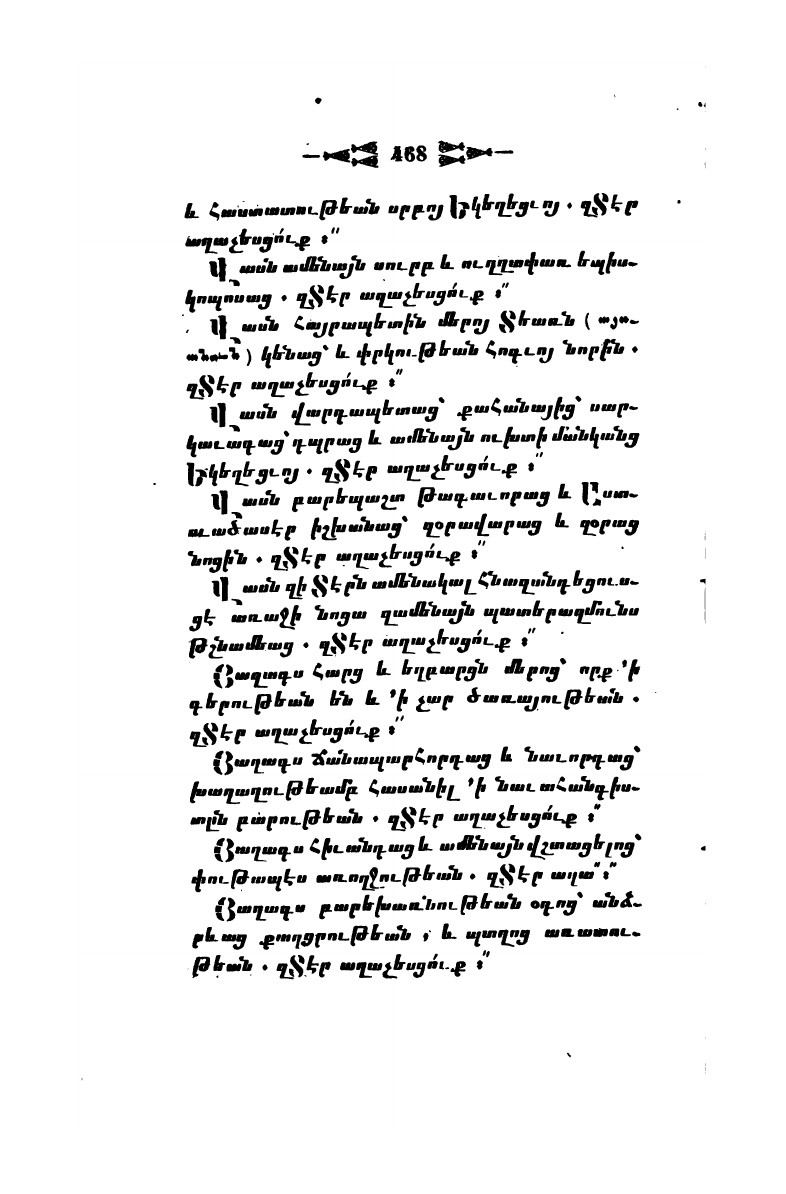 468
և հաստատութեան սրբոյ Եկեղեցւոյ . զՏէր
աղաչեսցո՛ւք ։՟
Վասն ամենայն սուրբ և ուղղափառ եպիս-
կոպոսաց . զՏէր աղաչեսցո՛ւք ։՟
Վասն Հայրապետին մերոյ Տեառն ( այս-
անուն ) կենաց՝ և փրկութեան հոգւոյ նորին .
զՏէր աղաչեսցո՛ւք ։՟
Վասն վարդապետաց՝ քահանայից՝ սար-
կաւագաց՝ դպրաց և ամենայն ուխտի մանկանց
Եկեղեցւոյ . զՏէր աղաչեսցո՛ւք ։՟
Վասն բարեպաշտ թագաւորաց և Աստ-
ուածասէր իշխանաց՝ զօրավարաց և զօրաց
նոցին . զՏէր աղաչեսցո՛ւք ։՟
Վասն զի Տէրն ամենակալ հնազանդեցուս-
ցէ առաջի նոցա զամենայն պատերազմունս
թշնամեաց . զՏէր աղաչեսցո՛ւք ։՟
Յաղագս հարց և եղբարցն մերոց՝ որք ՚ի
գերութեան են և ՚ի չար ծառայութեան .
զՏէր աղաչեսցո՛ւք ։՟
Յաղագս ճանապարհորդաց և նաւորդաց՝
խաղաղութեամբ հասանիլ ՚ի նաւահանգիս-
տըն բարութեան . զՏէր աղաչեսցո՛ւք ։՟
Յաղագս հիւանդաց և ամենայն վշտացելոց՝
փութապէս առողջութեան . զՏէր աղա՟։՟
Յաղագս բարեխառնութեան օդոց՝ անձ-
րևաց քաղցրութեան , և պտղոց առատու-
թեան . զՏէր աղաչեսցո՛ւք ։՟